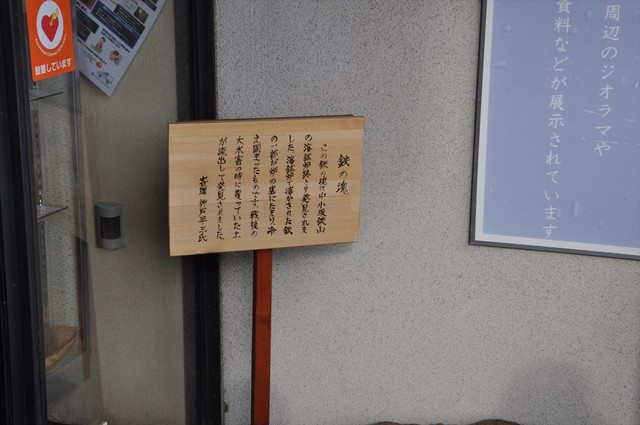 周辺のジオラマや
資料などが展示されています
鉄の塊
この鉄の塊は中小坂鉄山
の溶鉱炉跡より発見されま
した。溶鉱炉で溶かされた鉄
の一部が炉の底にたまり、冷
え固まったものです。戦後の
大水害の時に覆っていた土
が流出して発見されました。
寄贈 神戸 三氏
設置しています